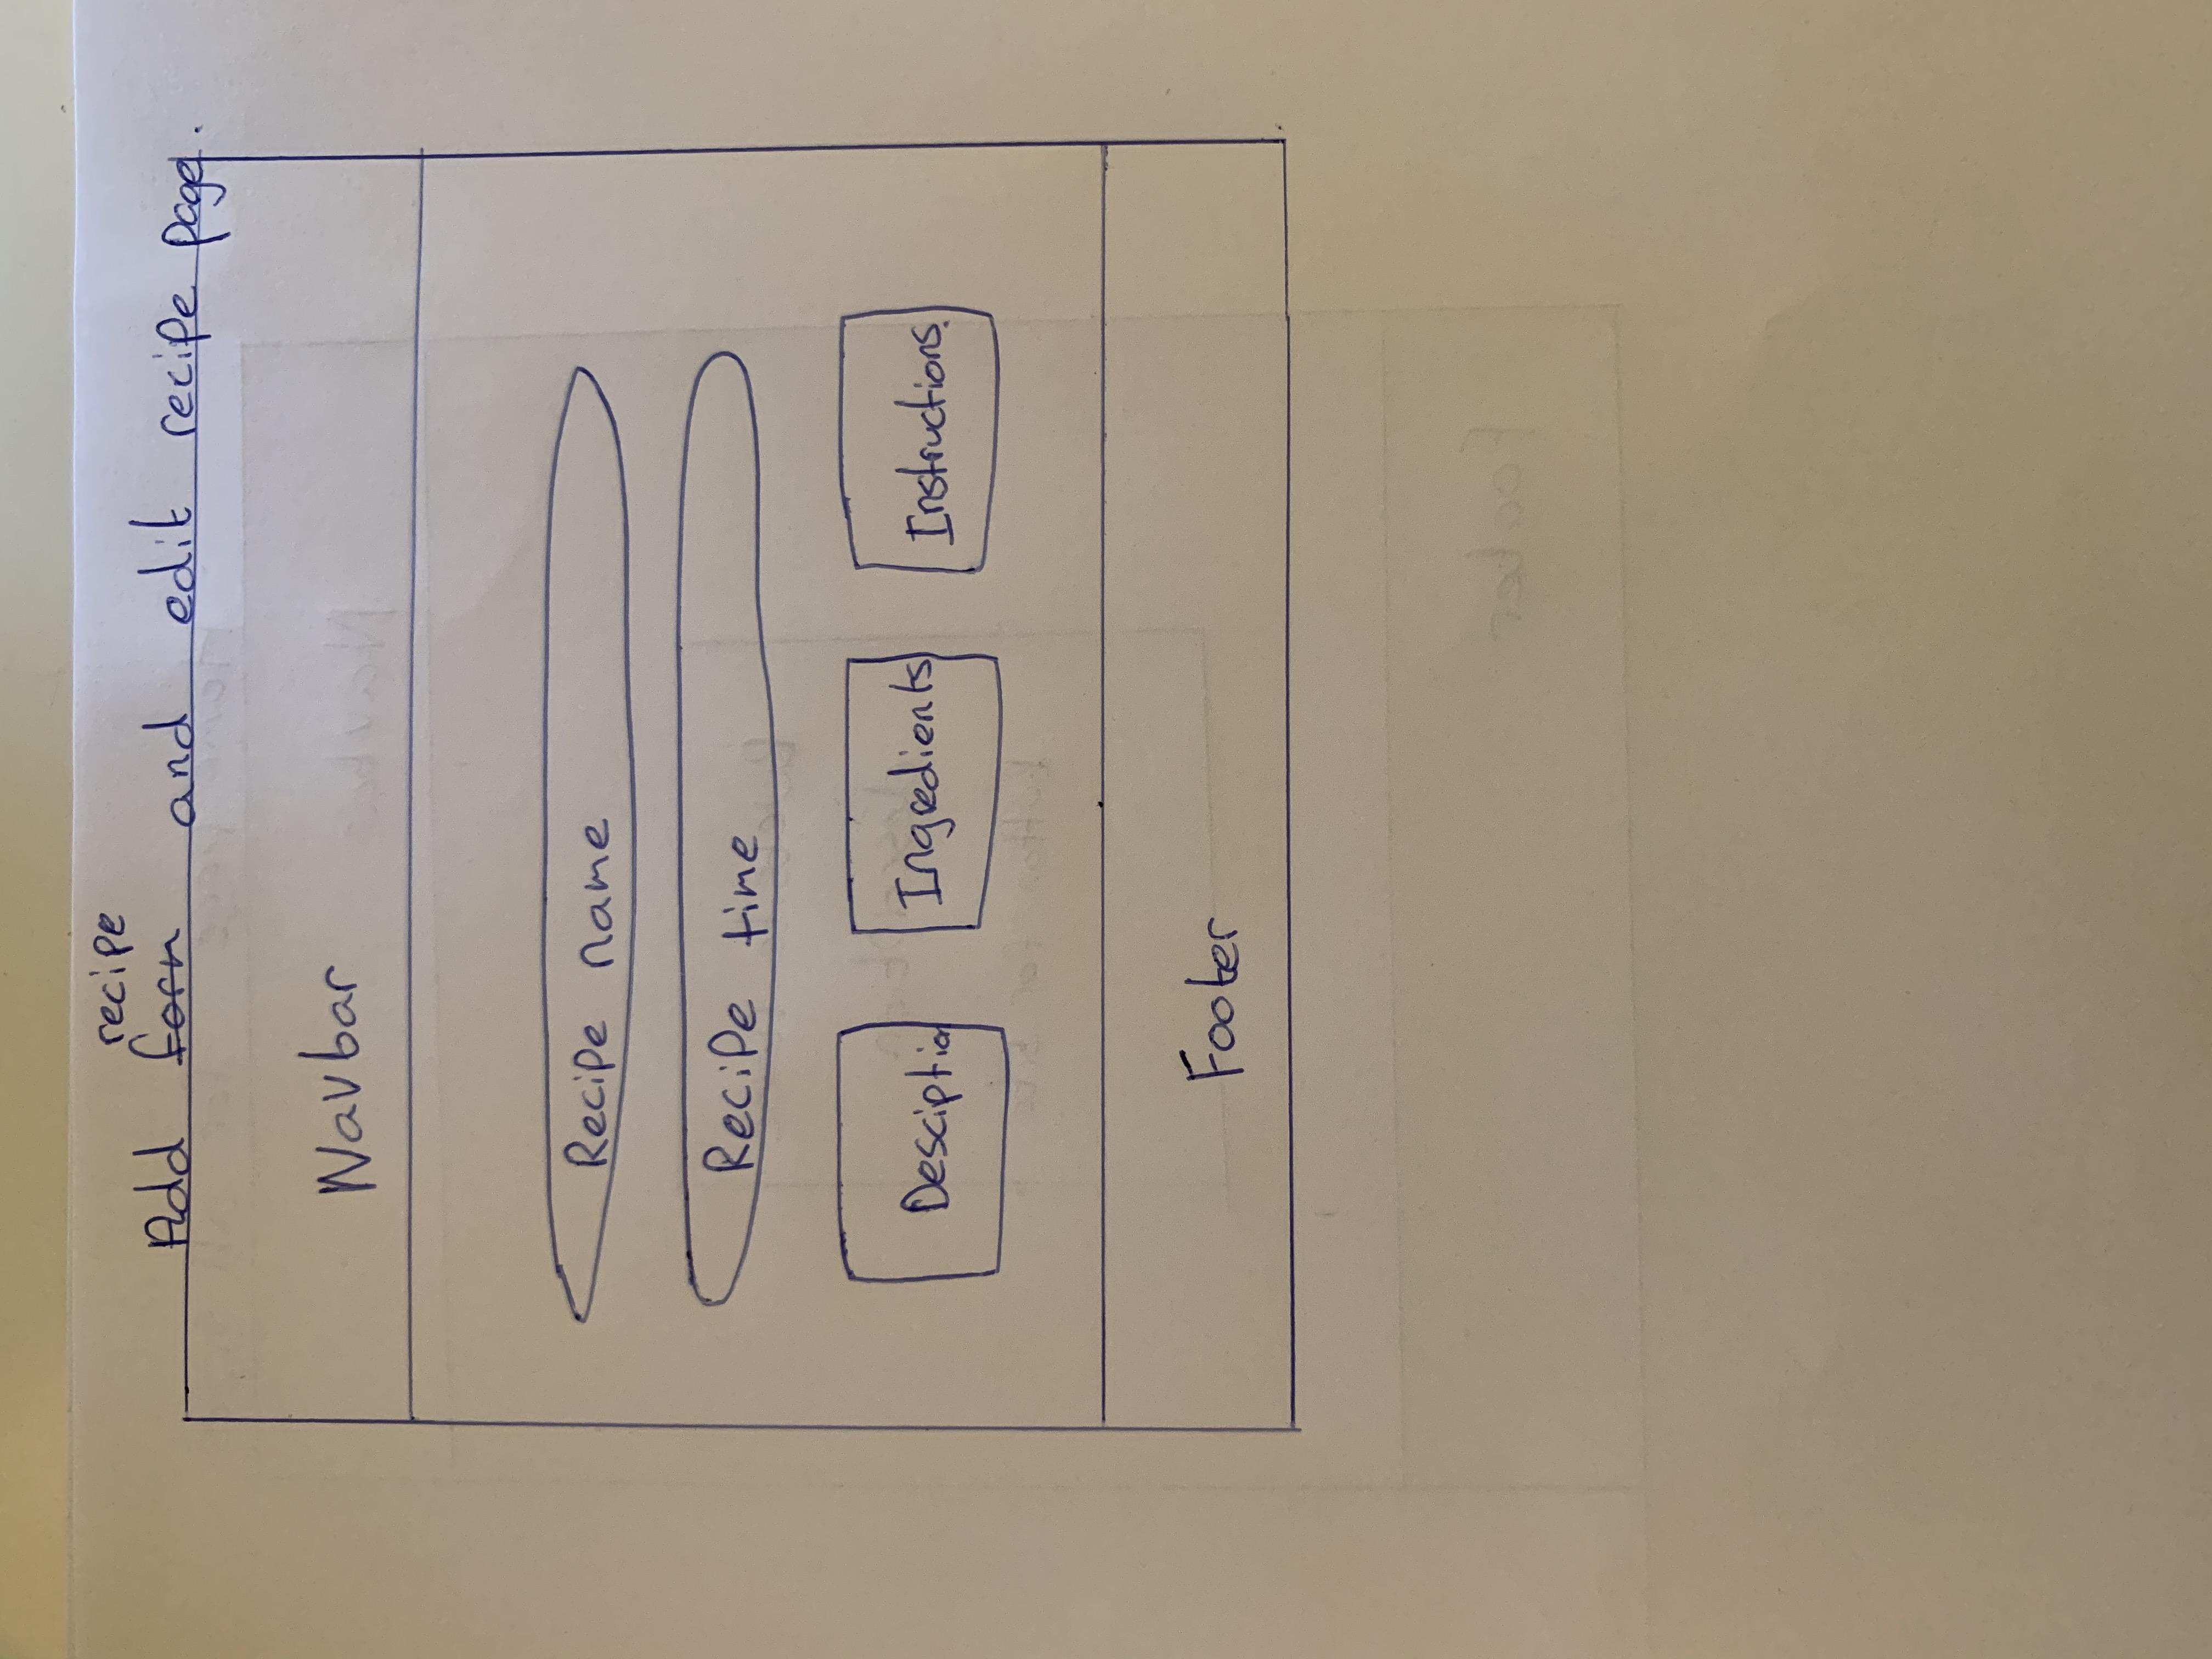 recipe
Add form and edit recipe page.
Navbar
Recipe name
Recipe time
Desciption Ingredients Instructions.
Footer